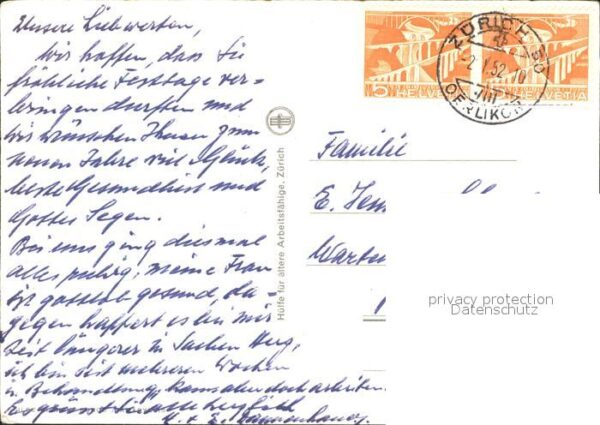 Unsere Liebwerten,
Wir hoffen, dass Sie
fröhliche Festtage ver-
bringen durften und
wir wünschen Ihnen zum
neuen Jahre viel Glück,
beste Gesundheit und
Gottes Segen.
Bei uns ging diesmal
alles ruhig, meine Frau
ist gottlob gesund, da-
gegen happert es bei mir
seit längerer in Sachen Herz,
ich bin seit mehreren Wochen
in Behandlung, kann aber doch arbeiten.
Es grüsst Sie alle herzlich
Hülfe für ältere Arbeitsfähige, Zürich
ZÜRICH 50
2.I.52
OERLIKON
5 HELVETIA
HELVETIA
Familie
E.
privacy protection
Datenschutz